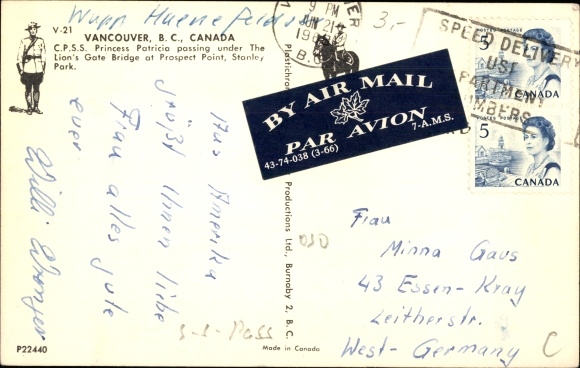 Wupp Huenefeldstr
3.-
V-21
VANCOUVER, B. C., CANADA
C.P.S.S. Princess Patricia passing under The
Lion's Gate Bridge at Prospect Point, Stanley
Park.
9 PM
B.C.
SPEED DELIVERY
USE
APARTMENT
NUMBERS
POSTES POSTAGE
5
CANADA
POSTES POSTAGE
5
CANADA
BY AIR MAIL
PAR AVION
43-74-038 (3-66)
7-A.M.S.
Aus Amerika
grüßt Ihnen liebe
Frau alles gute
euer
Willi
Productions Ltd., Burnaby 2, B. C.
Frau
Minna Gaus
43 Essen-Kray
Leitherstr.
West-Germany
C
S-S-Pass
P22440
Made in Canada